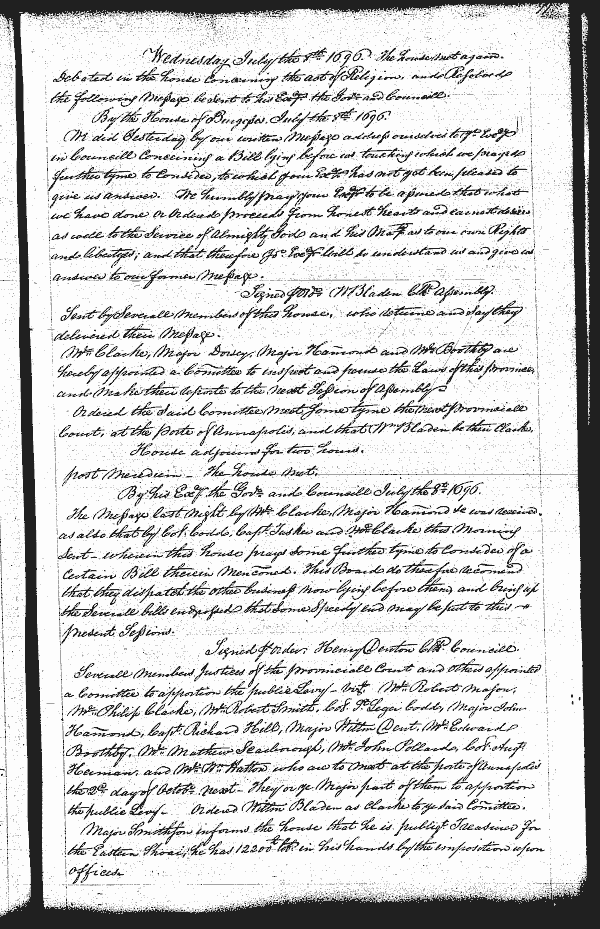 Wednesday July the 8th 1696. The house met again.
Debated in the house Concerning the act of Religion, and Resolved
the following Message be sent to his Exc͠y the Govr and Councill.
By the House of Burgesses July the 8th 1696.
We did Yesterday by our written Message address ourselves to yr Exc͠y
in Councill Concerning a Bill lying before us touching which we prayed
further tyme to Consider, to which your Exc͠y has not yet been pleased to
give us answer. We humbly pray your Exc͠y to be assured that what
we have done or Ordered proceeds from honest hearts and earnest desires
as well to the Service of Almighty God and his Maty as to our own Rights
and libertyes; and that therefore yr Exc͠y will so understand us and give us
answer to our former Message.
Signed p Ordr W Bladen Clk Assembly.
Sent by Severall Members of this house, who returne and say they
delivered their Message.
Mr Clarke, Major Dorsey, Major Ham͠ond and Mr Boothby are
hereby appointed a Com͠ittee to inspect and peruse the Laws of this province,
and make their reporte to the next Session of Assembly
Ordered the said Com͠ittee meet some tyme the next provinciall
Court, at the porte of Annapolis, and that Wm Bladen be their Clarke,
House adjourns for two hours.
post Meridiem - The house met.
By his Exc͠y the Govr and Councill July the 8th 1696.
The Message last night by Mr Clarke, Major Ham͠ond &c was received
as also that by Col. Codd, Capt Tasker and Mr Clarke this Morning
sent - wherein this house prays some further tyme to Consider of a
Certain Bill therein Menc͠oned. This Board do therefore recom͠end
that they dispatch the other business now lying before them and bring up
the Severall bills endorsed that some Speedy end may be put to this
present Sessions.
Signed p Order Henry Denton Clk Councill
Severall Members Justices of the provinciall Court and others appointed
a Com͠ittee to apportion the public Levy - Vizt Mr Robert Mason,
Mr Philip Clarke, Mr Robert Smith, Col. St Leger Codd, Major John
Ham͠ond, Capt Richard Hill, Major Willm Dent, Mr Edward
Boothby, Mr Mathew Scarborough, Mr John Pollard, Col. Augt
Herman, and Mr Wm Hatton who are to meet at the porte of Annapolis
the 2d day of Octobr next - They or ye Major part of them to apportion
the public Levy - Ordered Willm Bladen as Clarke to ye said Com͠ittee.
Major Smithson informs the house that he is publiq Treasurer for
the Eastern Shoar, he has 12200 lb tob. in his hands by the imposition upon
offices